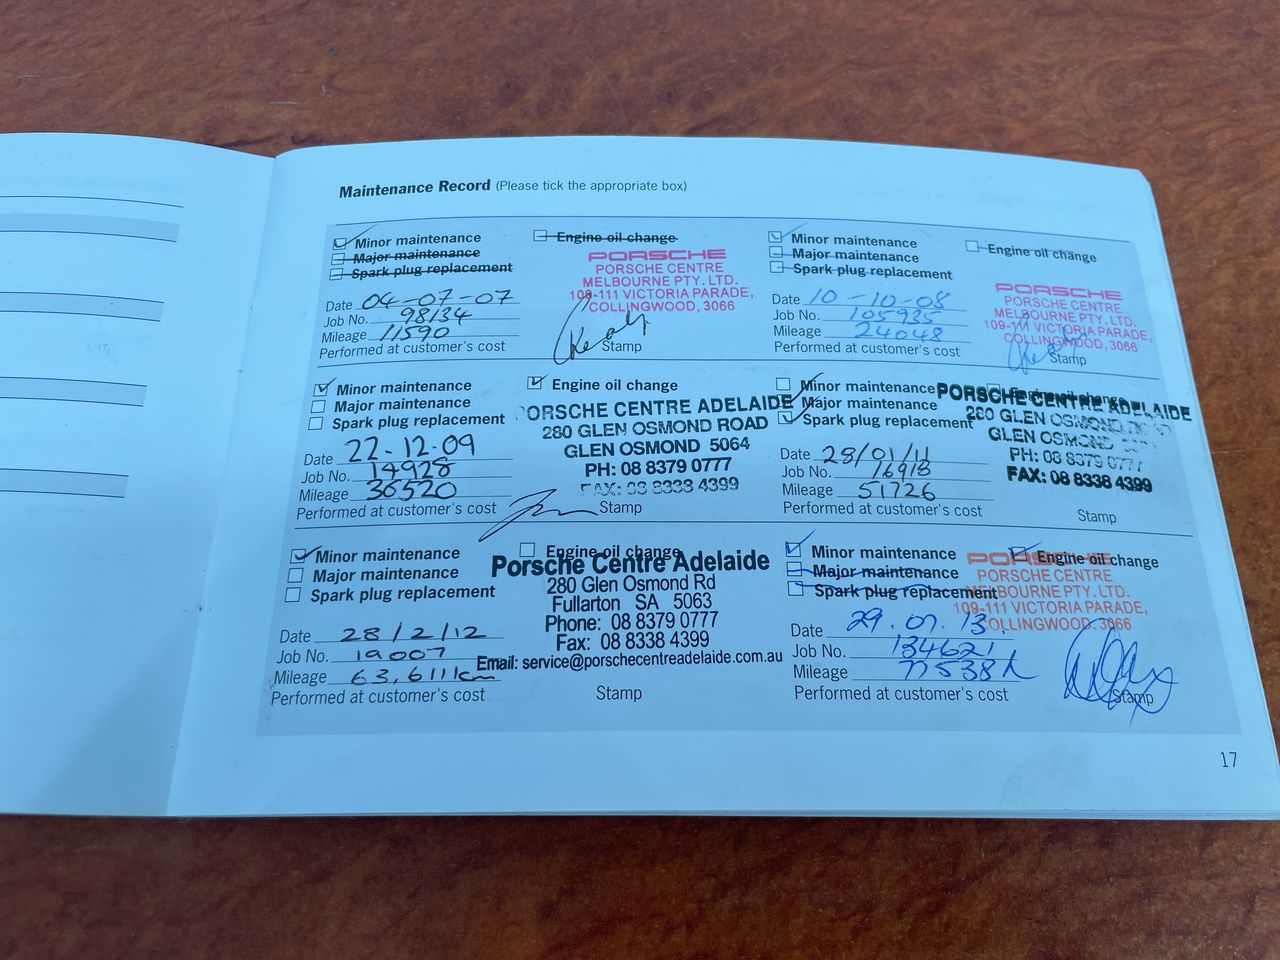 Maintenance Record (Please tick the appropriate box)
Minor maintenance
Major maintenance
Spark plug replacement
Engine oil change
PORSCHE
PORSCHE CENTRE
MELBOURNE PTY. LTD.
109-111 VICTORIA PARADE,
COLLINGWOOD, 3066
Date 04-07-07
Job No. 98134
Mileage 11590
Performed at customer's cost
Stamp
Minor maintenance
Major maintenance
Spark plug replacement
Engine oil change
PORSCHE
PORSCHE CENTRE
MELBOURNE PTY. LTD.
109-111 VICTORIA PARADE,
COLLINGWOOD, 3066
Date 10-10-08
Job No. 105935
Mileage 24048
Performed at customer's cost
Stamp
Minor maintenance
Major maintenance
Spark plug replacement
Engine oil change
PORSCHE CENTRE ADELAIDE
280 GLEN OSMOND ROAD
GLEN OSMOND 5064
PH: 08 8379 0777
FAX: 08 8338 4399
Date 22.12.09
Job No. 14928
Mileage 36520
Performed at customer's cost
Stamp
Minor maintenance
Major maintenance
Spark plug replacement
Engine oil change
PORSCHE CENTRE ADELAIDE
280 GLEN OSMOND
GLEN OSMOND
PH: 08 8379 0777
FAX: 08 8338 4399
Date 28/01/11
Job No. 16918
Mileage 51726
Performed at customer's cost
Stamp
Minor maintenance
Major maintenance
Spark plug replacement
Engine oil change
Porsche Centre Adelaide
280 Glen Osmond Rd
Fullarton SA 5063
Phone: 08 8379 0777
Fax: 08 8338 4399
Email: service@porschecentreadelaide.com.au
Date 28/2/12
Job No. 19007
Mileage 63,611km
Performed at customer's cost
Stamp
Minor maintenance
Major maintenance
Spark plug replacement
Engine oil change
PORSCHE
PORSCHE CENTRE
MELBOURNE PTY. LTD.
109-111 VICTORIA PARADE,
COLLINGWOOD, 3066
Date 29.07.13.
Job No. 134621
Mileage 77538k
Performed at customer's cost
Stamp
17